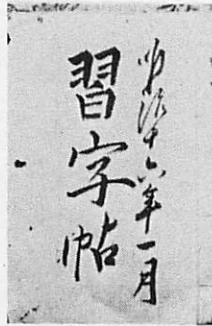 明治十六年一月
習字帖